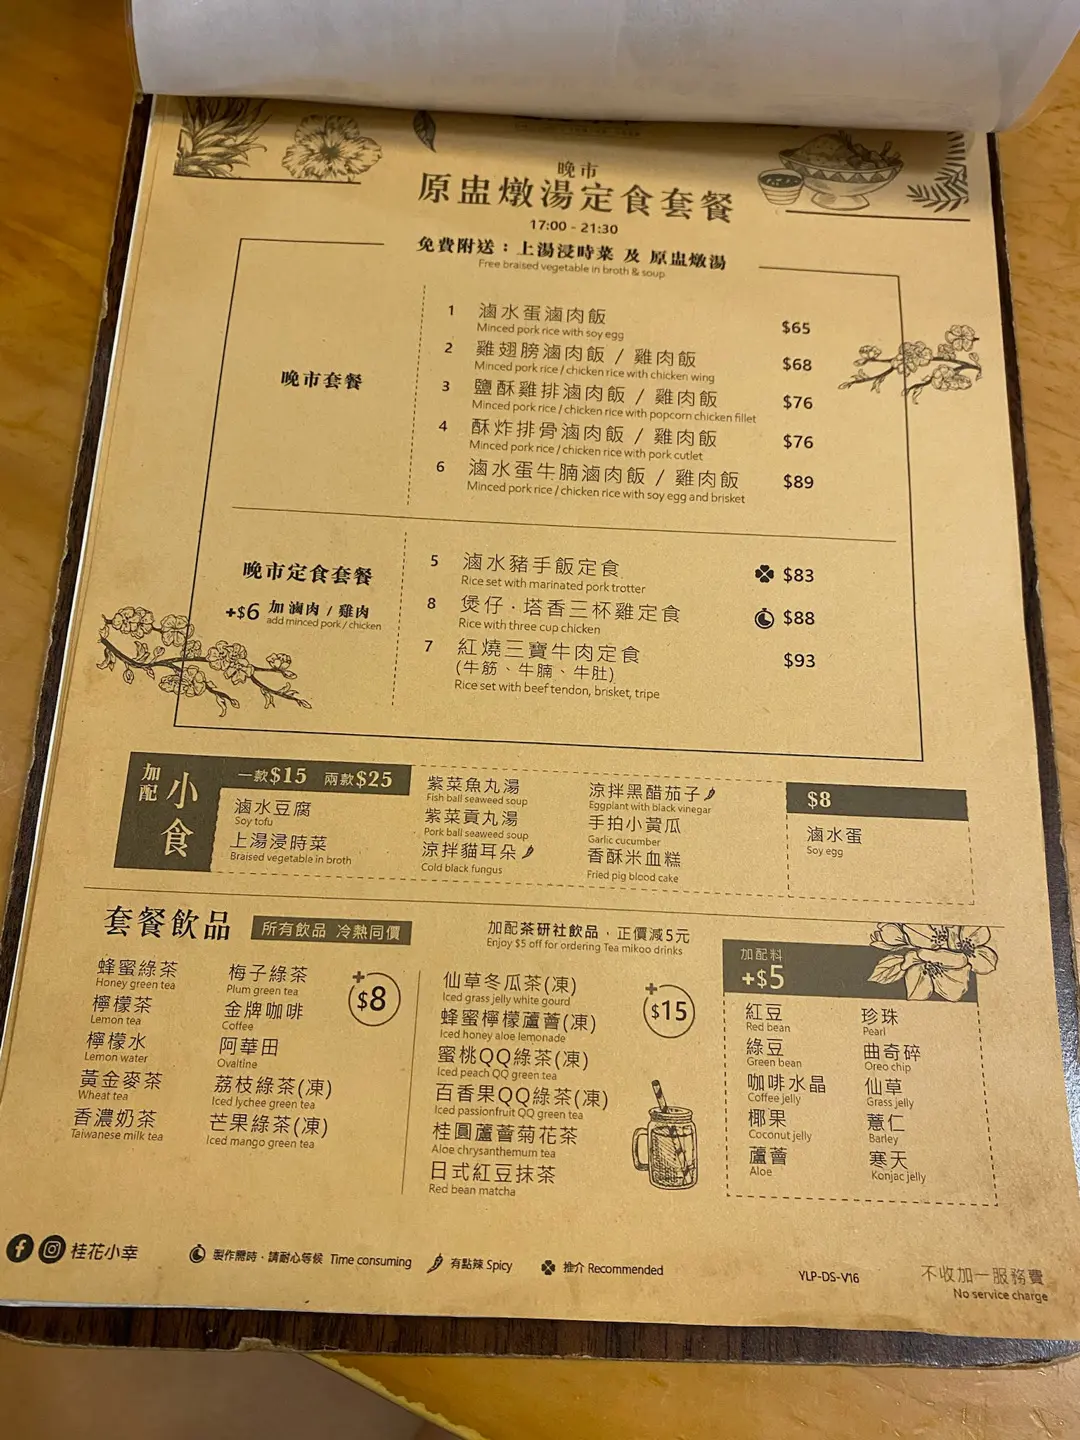 晚市
原盅燉湯定食套餐
17:00 - 21:30
免費附送：上湯浸時菜 及 原盅燉湯
Free braised vegetable in broth & soup
晚市套餐
1 滷水蛋滷肉飯 $65
Minced pork rice with soy egg
2 雞翅膀滷肉飯 / 雞肉飯 $68
Minced pork rice / chicken rice with chicken wing
3 鹽酥雞排滷肉飯 / 雞肉飯 $76
Minced pork rice / chicken rice with popcorn chicken fillet
4 酥炸排骨滷肉飯 / 雞肉飯 $76
Minced pork rice / chicken rice with pork cutlet
6 滷水蛋牛腩滷肉飯 / 雞肉飯 $89
Minced pork rice / chicken rice with soy egg and brisket
晚市定食套餐
+$6 加 滷肉 / 雞肉
add minced pork / chicken
5 滷水豬手飯定食 $83
Rice set with marinated pork trotter
8 煲仔．塔香三杯雞定食 $88
Rice with three cup chicken
7 紅燒三寶牛肉定食 $93
(牛筋、牛腩、牛肚)
Rice set with beef tendon, brisket, tripe
加配 小食
一款$15 兩款$25
滷水豆腐
Soy tofu
上湯浸時菜
Braised vegetable in broth
紫菜魚丸湯
Fish ball seaweed soup
紫菜貢丸湯
Pork ball seaweed soup
涼拌貓耳朵
Cold black fungus
涼拌黑醋茄子
Eggplant with black vinegar
手拍小黃瓜
Garlic cucumber
香酥米血糕
Fried pig blood cake
$8
滷水蛋
Soy egg
套餐飲品
所有飲品 冷熱同價
+$8
蜂蜜綠茶
Honey green tea
檸檬茶
Lemon tea
檸檬水
Lemon water
黃金麥茶
Wheat tea
香濃奶茶
Taiwanese milk tea
梅子綠茶
Plum green tea
金牌咖啡
Coffee
阿華田
Ovaltine
荔枝綠茶(凍)
Iced lychee green tea
芒果綠茶(凍)
Iced mango green tea
加配茶研社飲品，正價減5元
Enjoy $5 off for ordering Tea mikoo drinks
+$15
仙草冬瓜茶(凍)
Iced grass jelly white gourd
蜂蜜檸檬蘆薈(凍)
Iced honey aloe lemonade
蜜桃QQ綠茶(凍)
Iced peach QQ green tea
百香果QQ綠茶(凍)
Iced passionfruit QQ green tea
桂圓蘆薈菊花茶
Aloe chrysanthemum tea
日式紅豆抹茶
Red bean matcha
加配料
+$5
紅豆
Red bean
綠豆
Green bean
咖啡水晶
Coffee jelly
椰果
Coconut jelly
蘆薈
Aloe
珍珠
Pearl
曲奇碎
Oreo chip
仙草
Grass jelly
薏仁
Barley
寒天
Konjac jelly
桂花小幸
製作需時，請耐心等候 Time consuming
有點辣 Spicy
推介 Recommended
YLP-DS-V16
不收加一服務費
No service charge